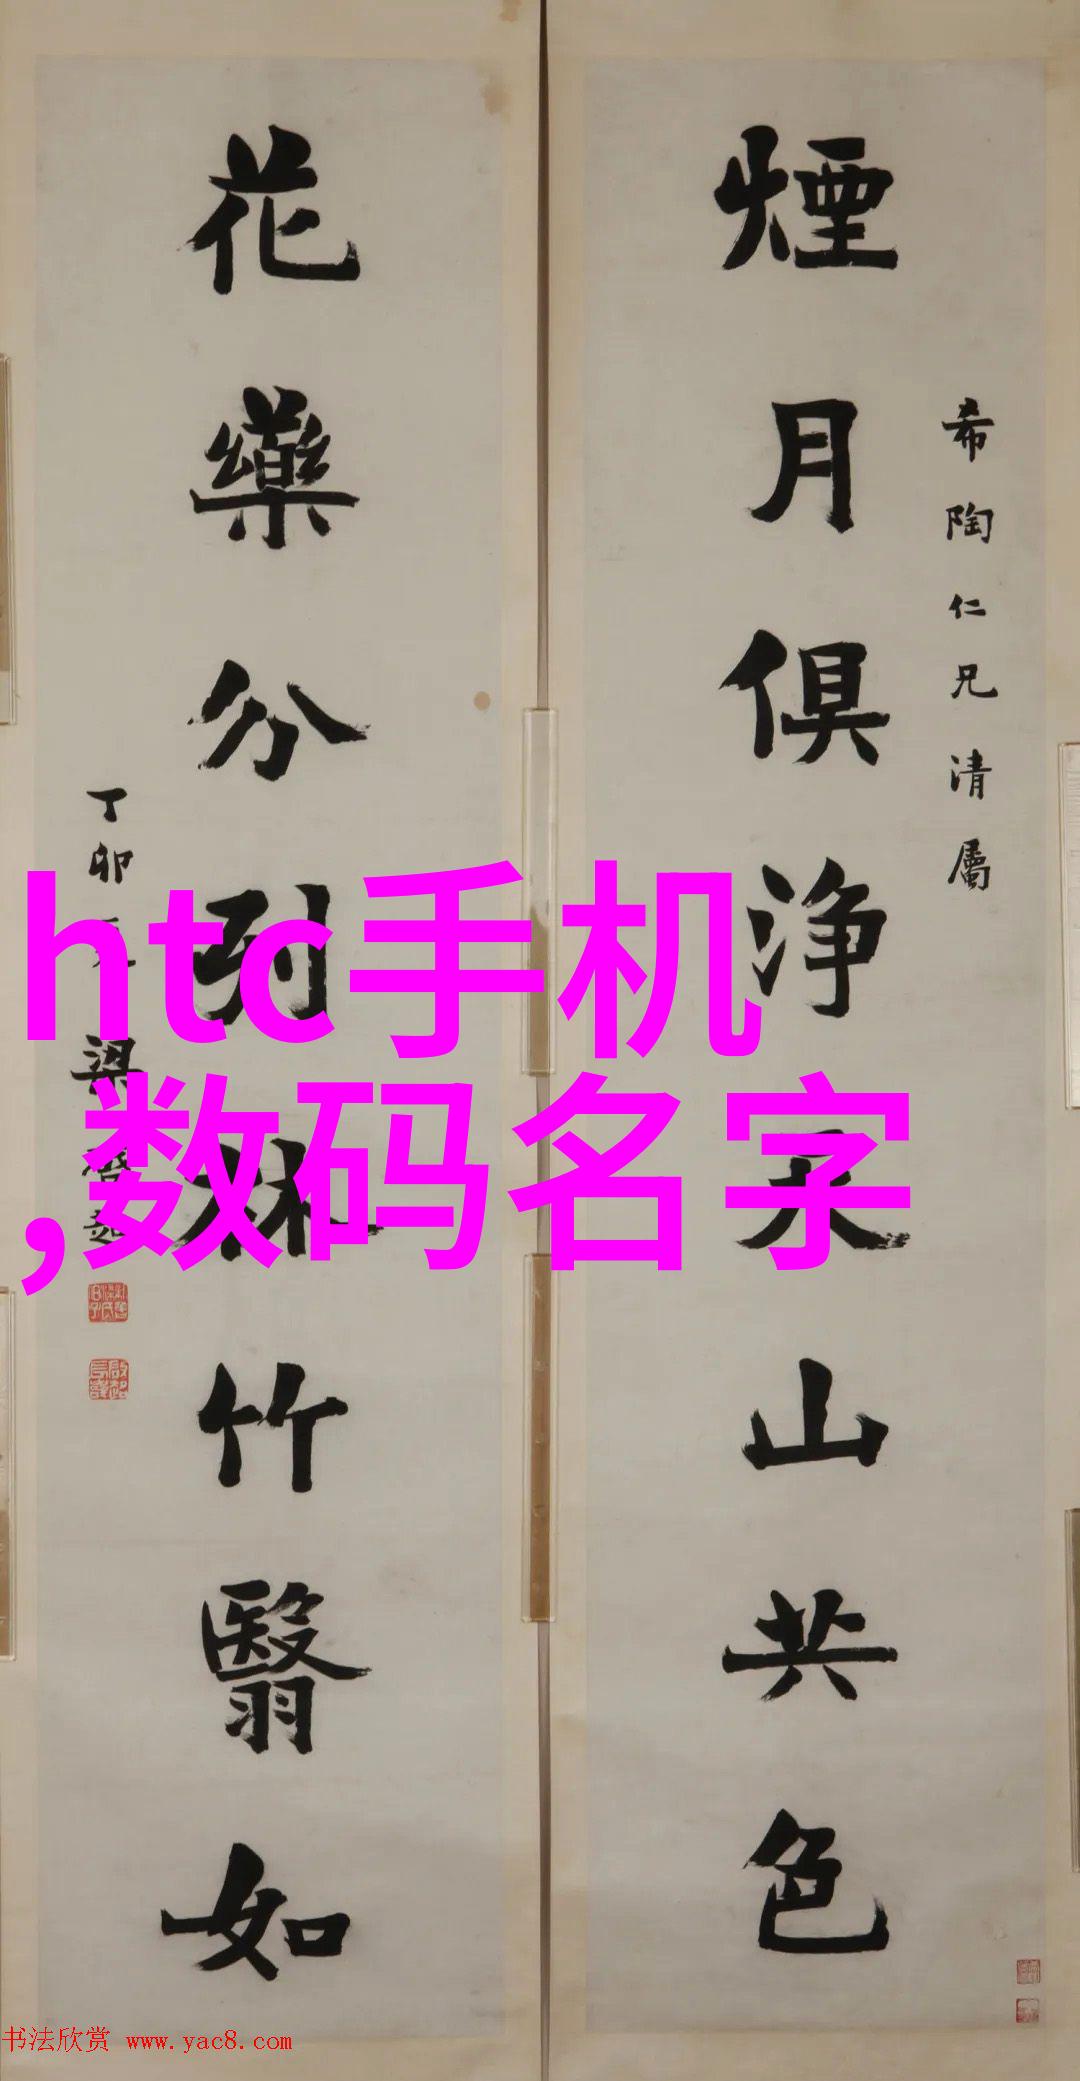 煙月俱淨
山共色
希陶仁兄清屬
花藥分列林竹翳如
丁卯
梁啓超
htc手机
,数码名字
书法欣赏 www.yac8.com